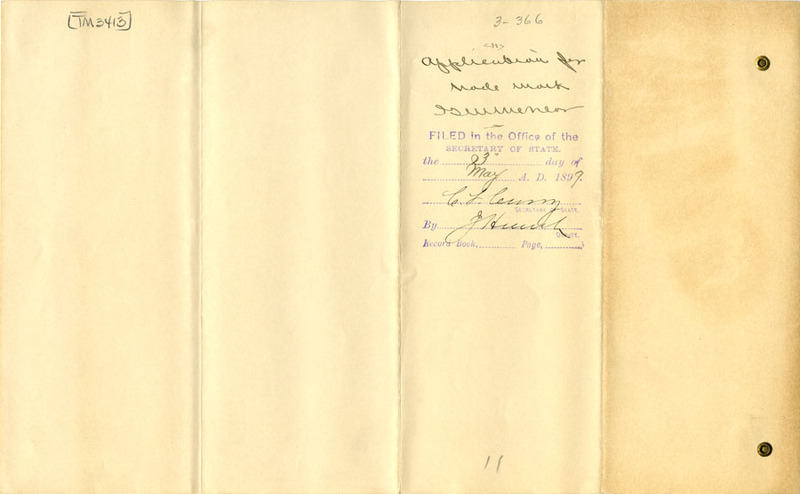 [TM3413]
3-366
Application for
trade mark
FILED in the Office of the
SECRETARY OF STATE.
the 23 day of
May A. D. 1899.
C. F. Curry
SECRETARY OF STATE.
By J Hoesch
DEPUTY.
Record Book, Page,
11